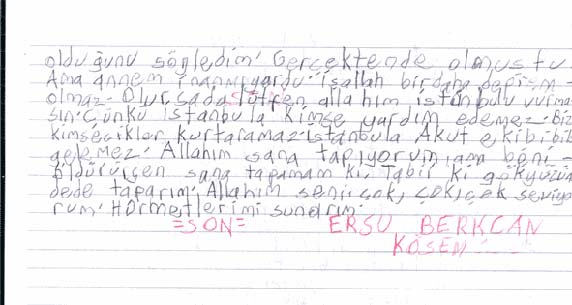 olduğunu söyledim. Gerçektende olmuştu
Ama annem inanmıyordu. işallah birdaha deprem -
olmaz. Olursada lütfen allahım istanbulu vurma
sın. Çünkü istanbula kimse yardım edemez. Biz
kimsecikler kurtaramaz. istanbula Akut ekibi bile
gelmez. Allahım sana tapıyorum ama beni -
öldürürsen sana tapamam ki, tabi ki gökyüzün
dede taparım. Allahım seni çok, çok, çok seviyo
rum. Hörmetlerimi sunarım.
=SON= ERSU BERKCAN
KÖSEM